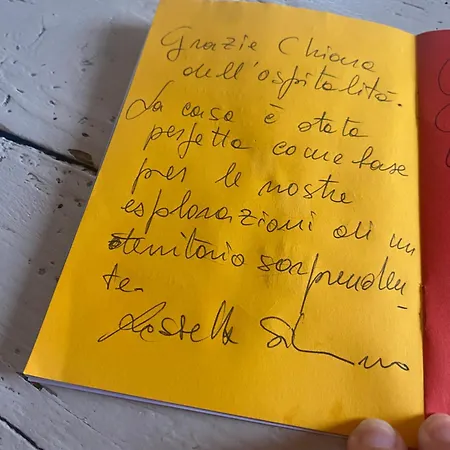 Grazie Chiara
dell'ospitalità.
La casa è stata
perfetta come base
per le nostre
esplorazioni di un
territorio sorprenden-
te.